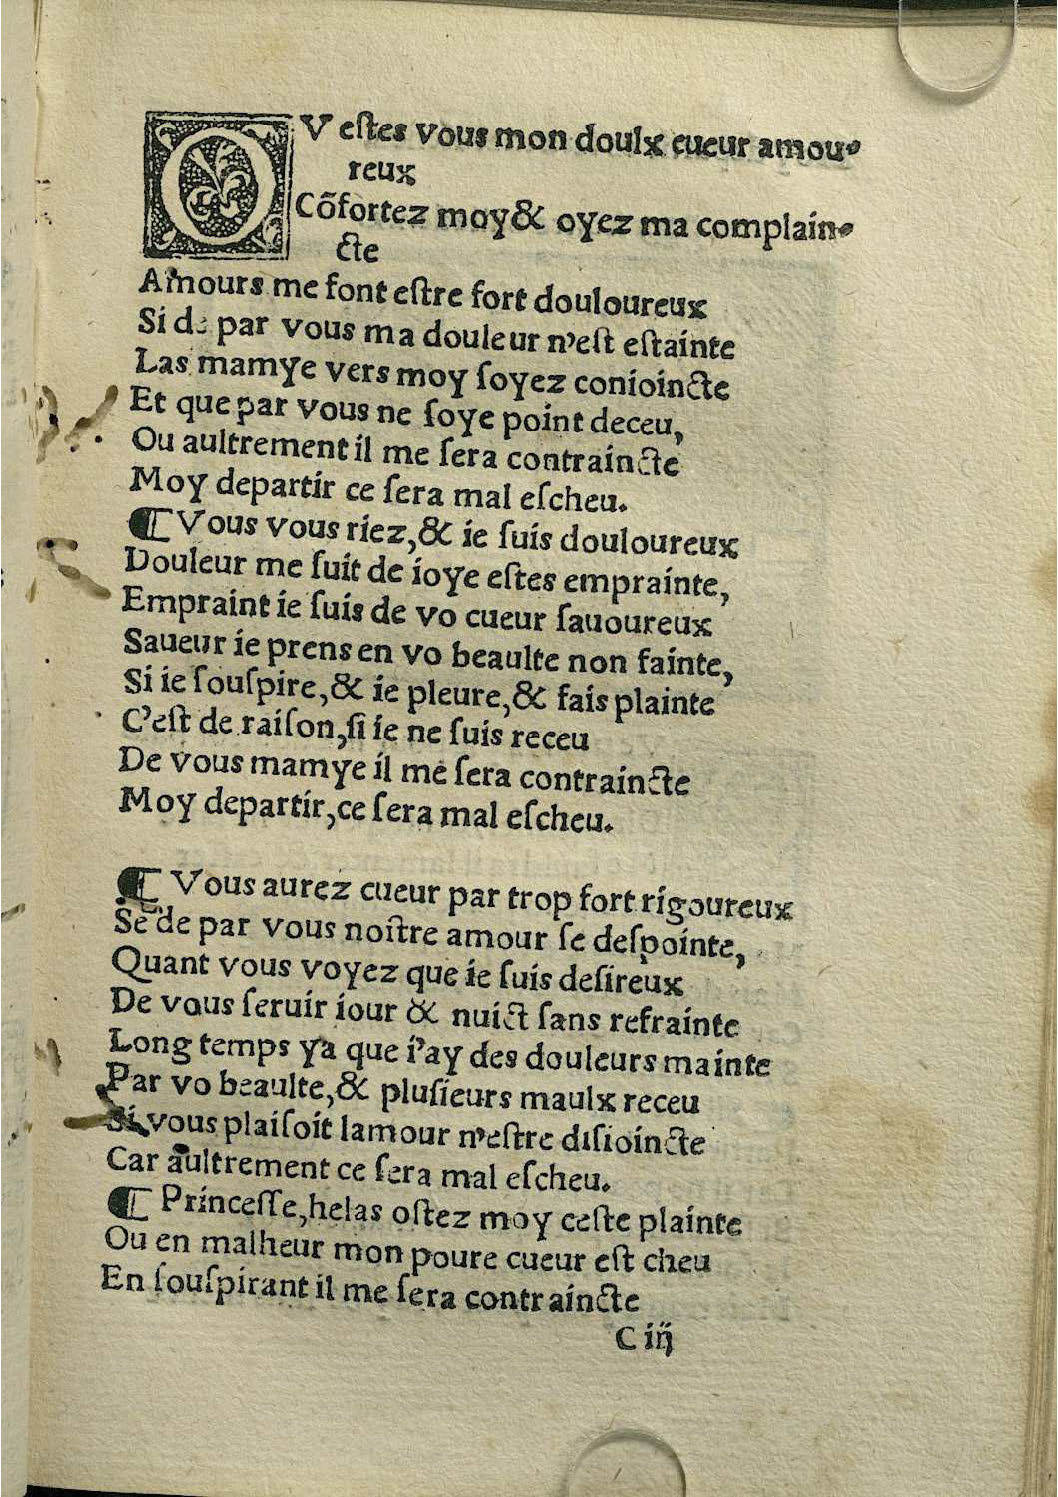 OV eſtes vous mon doulx cueur amou-
reux
Cõfortez moy & oyez ma complain-
cte
Amours me font eſtre fort douloureux
Si de par vous ma douleur n'eſt eſtainte
Las mamye vers moy ſoyez conioincte
Et que par vous ne ſoye point deceu,
Ou aultrement il me ſera contraincte
Moy departir ce ſera mal eſcheu.
¶ Vous vous riez, & ie ſuis douloureux
Douleur me ſuit de ioye eſtes emprainte,
Empraint ie ſuis de vo cueur ſauoureux
Saueur ie prens en vo beaulte non fainte,
Si ie ſouſpire, & ie pleure, & fais plainte
C'eſt de raiſon, ſi ie ne ſuis receu
De vous mamye il me ſera contraincte
Moy departir, ce ſera mal eſcheu.
¶ Vous aurez cueur par trop fort rigoureux
Se de par vous noſtre amour ſe deſpointe,
Quant vous voyez que ie ſuis deſireux
De vous ſeruir iour & nuict ſans refrainte
Long temps y a que i'ay des douleurs mainte
Par vo beaulte, & pluſieurs maulx receu
Si vous plaiſoit lamour n'eſtre diſioincte
Car aultrement ce ſera mal eſcheu.
¶ Princeſſe, helas oſtez moy ceſte plainte
Ou en malheur mon poure cueur eſt cheu
En ſouſpirant il me ſera contraincte
C iij